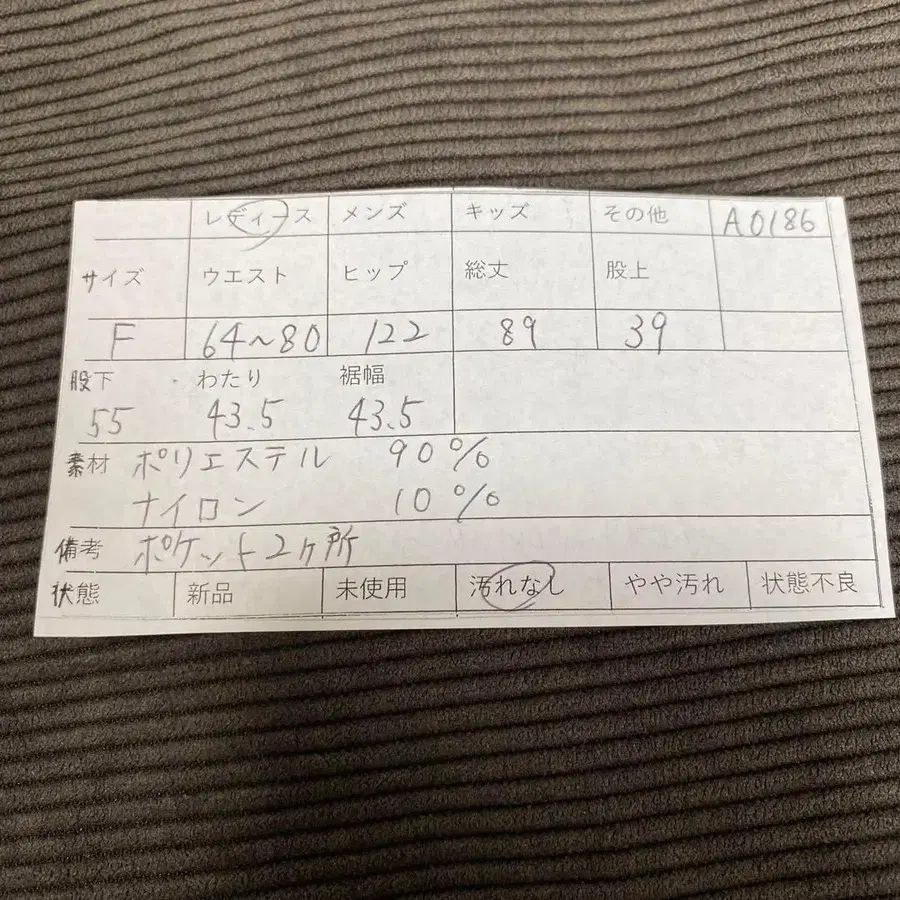 レディース メンズ キッズ その他 A0186
サイズ ウエスト ヒップ 総丈 股上
F 64~80 122 89 39
股下 わたり 裾幅
55 43.5 43.5
素材 ポリエステル 90%
ナイロン 10%
備考 ポケット2ヶ所
状態 新品 未使用 汚れなし やや汚れ 状態不良